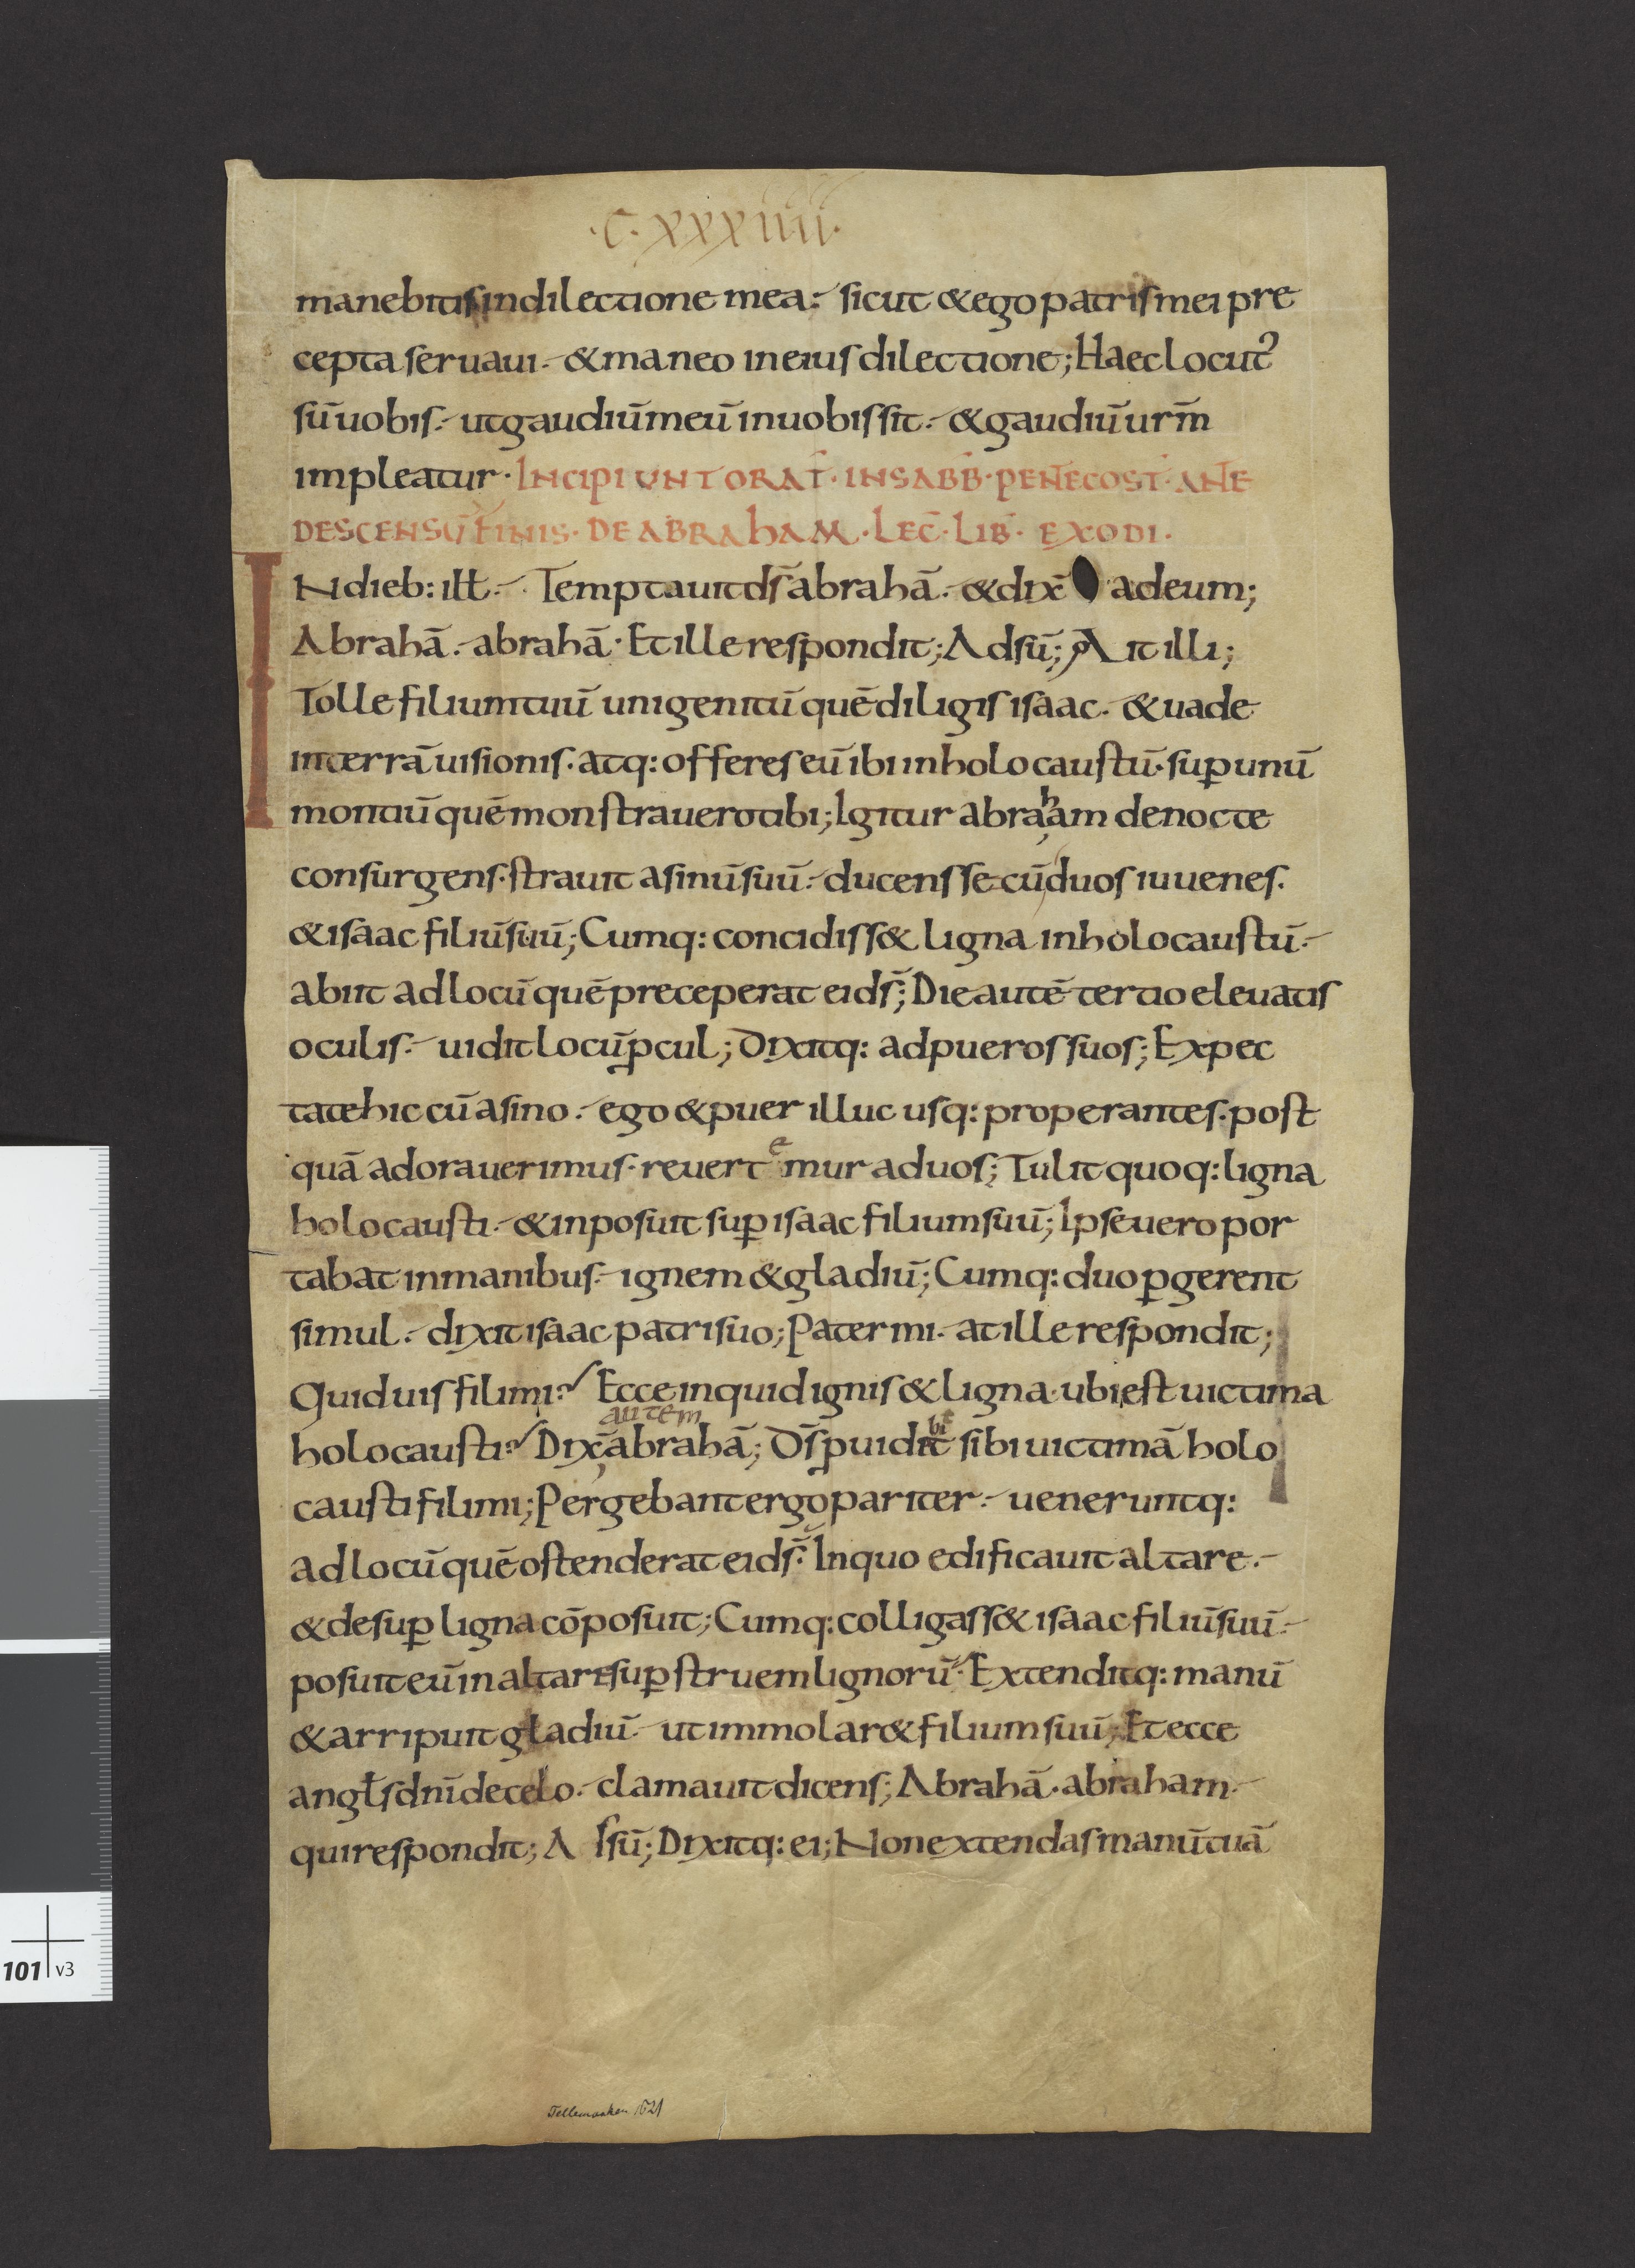 ·C·XXXIIII·
manebitis in dilectione mea· sicut & ego patris mei pre
cepta seruaui· & maneo in eius dilectione; Haec locut᾿
sū uobis· ut gaudiū meū in uobis sit· & gaudiū urm̄
impleatur· INCIPIUNT ORAT̄· IN SABB̄· PENTECOST̄· ANTE
DESCENSŪ FONIS· DE ABRAHAM· LEC̄· LIB̄· EXODI·
IN dieb: ilł· Temptauit ds̄ abrahā· & dix̄ ad eum;
Abrahā· abrahā· Et ille respondit; Adsū; Ait illi;
Tolle filium tuū unigenitū quē diligis isaac· & uade
in terrā uisionis· atq: offeres eū ibi in holocaustū· sup̄ unū
montiū quē monstrauero tibi; Igitur abraham de nocte
consurgens· strauit asinū suū· ducens secū duos iuuenes·
& isaac filiū suū; Cumq: concidiss& ligna in holocaustū·
abiit ad locū quē preceperat ei ds̄; Die autē tertio eleuatis
oculis· uidit locū ꝓcul; Dixitq: ad pueros suos; Expec
tate hic cū asino· ego & puer illuc usq: properantes· post
quā adorauerimus· reuertemur ad uos; Tulit quoq: ligna
holocausti· & inposuit sup̄ isaac filium suū; Ipse uero por
tabat in manibus· ignem & gladiū; Cumq: duo ꝑgerent
simul· dixit isaac patri suo; Pater mi· at ille respondit;
Quid uis fili mi? Ecce inquid ignis & ligna· ubi est uictima
autem
holocausti? Dix̄ abrahā; Ds̄ p̄uidebit sibi uictimā holo
causti fili mi; Pergebant ergo pariter· ueneruntq:
ad locū quē ostenderat ei ds̄· In quo edificauit altare·
& desup̄ ligna cōposuit; Cumq: colligass& isaac filiū suū·
posuit eū in altare sup̄ struem lignorū· Extenditq: manū
& arripuit gladiū ut immolar& filium suū; Et ecce
angłs dnī de celo· clamauit dicens; Abrahā· abraham·
qui respondit; Assū; Dixitq: ei; Non extendas manū tuā
Tellemarken 1621